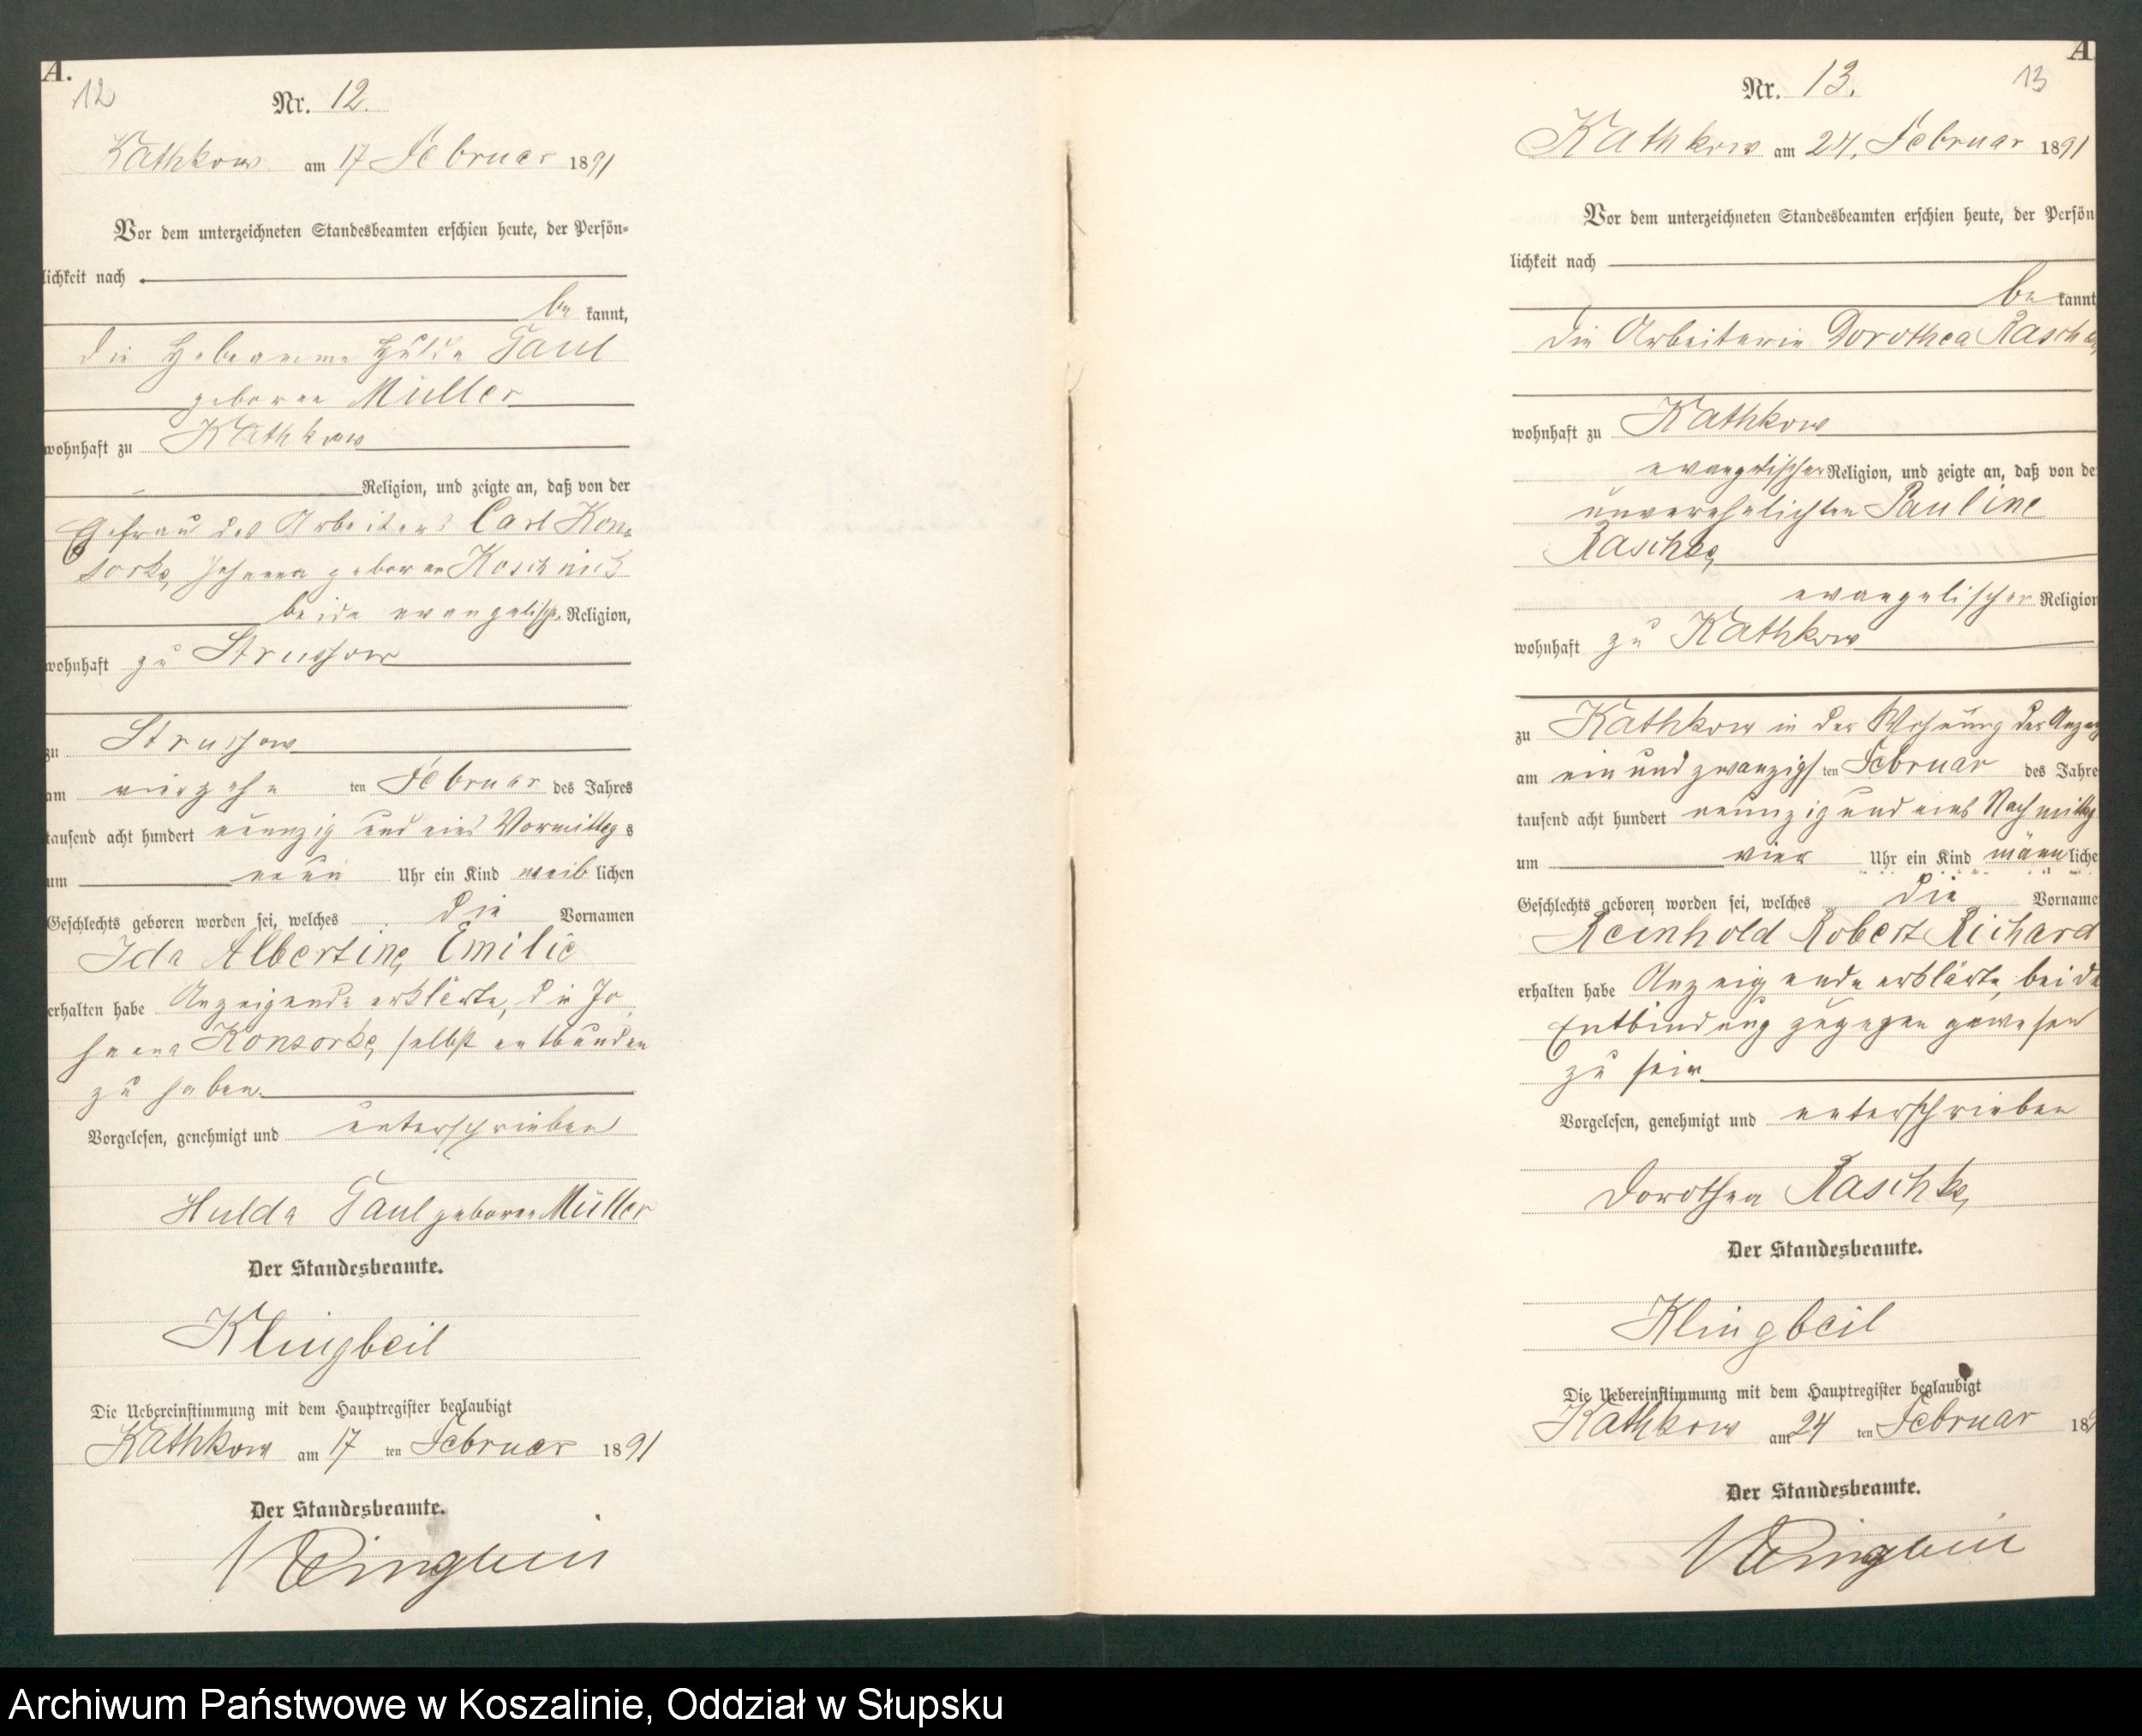 A.
12
Nr. 12.
Kathkow am 17 Februar 1891
Vor dem unterzeichneten Standesbeamten erschien heute, der Persön-
lichkeit nach
be kannt,
die Hebeamme Hulda Paul
geborene Müller
wohnhaft zu Kathkow
Religion, und zeigte an, daß von der
Ehefrau des Arbeiters Carl Kon-
sorke, Johanna geborene Koschnick
beide evangelischer Religion,
wohnhaft zu Strussow
zu Strussow
am vierzehn ten Februar des Jahres
tausend acht hundert neunzig und eins Vormittags
um neun Uhr ein Kind weib lichen
Geschlechts geboren worden sei, welches die Vornamen
Ida Albertine Emilie
erhalten habe Anzeigende erklärte, die Jo
hanna Konsorke, selbst entbunden
zu haben.
Vorgelesen, genehmigt und unterschrieben
Hulda Paul geborene Müller
Der Standesbeamte.
Klingbeil
Die Uebereinstimmung mit dem Hauptregister beglaubigt
Kathkow am 17 ten Februar 1891
Der Standesbeamte.
Klingbeil
A
13
Nr. 13.
Kathkow am 24. Februar 1891
Vor dem unterzeichneten Standesbeamten erschien heute, der Persön
lichkeit nach
be kannt
die Arbeiterin Dorothea Raschke
wohnhaft zu Kathkow
evangelischer Religion, und zeigte an, daß von de
unverehelichten Pauline
Raschke,
evangelischer Religion
wohnhaft zu Kathkow
zu Kathkow in der Wohnung der Anzeig
am ein und zwanzigs ten Februar des Jahre
tausend acht hundert neunzig und eins Nachmittag
um vier Uhr ein Kind männ liche
Geschlechts geboren worden sei, welches die Vorname
Reinhold Robert Richard
erhalten habe Anzeigende erklärte, bei de
Entbindung zugegen gewesen
zu sein
Vorgelesen, genehmigt und unterschrieben
Dorothea Raschke,
Der Standesbeamte.
Klingbeil
Die Uebereinstimmung mit dem Hauptregister beglaubigt
Kathkow am 24 ten Februar 189
Der Standesbeamte.
Klingbeil
Archiwum Państwowe w Koszalinie, Oddział w Słupsku